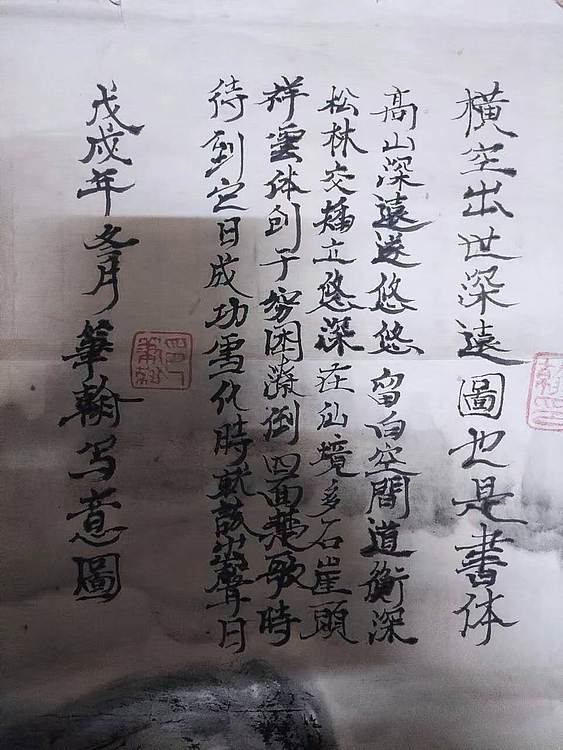 横空出世深遠圖也是書体
高山深遠逆悠悠留白空間道衡深
松林交矗立悠深在仙境多石崖頭
祥雲体创于穷困潦倒四面楚歌時
待到它日成功雪化時就該出聲日
戊戌年冬月
筆翰写意圖